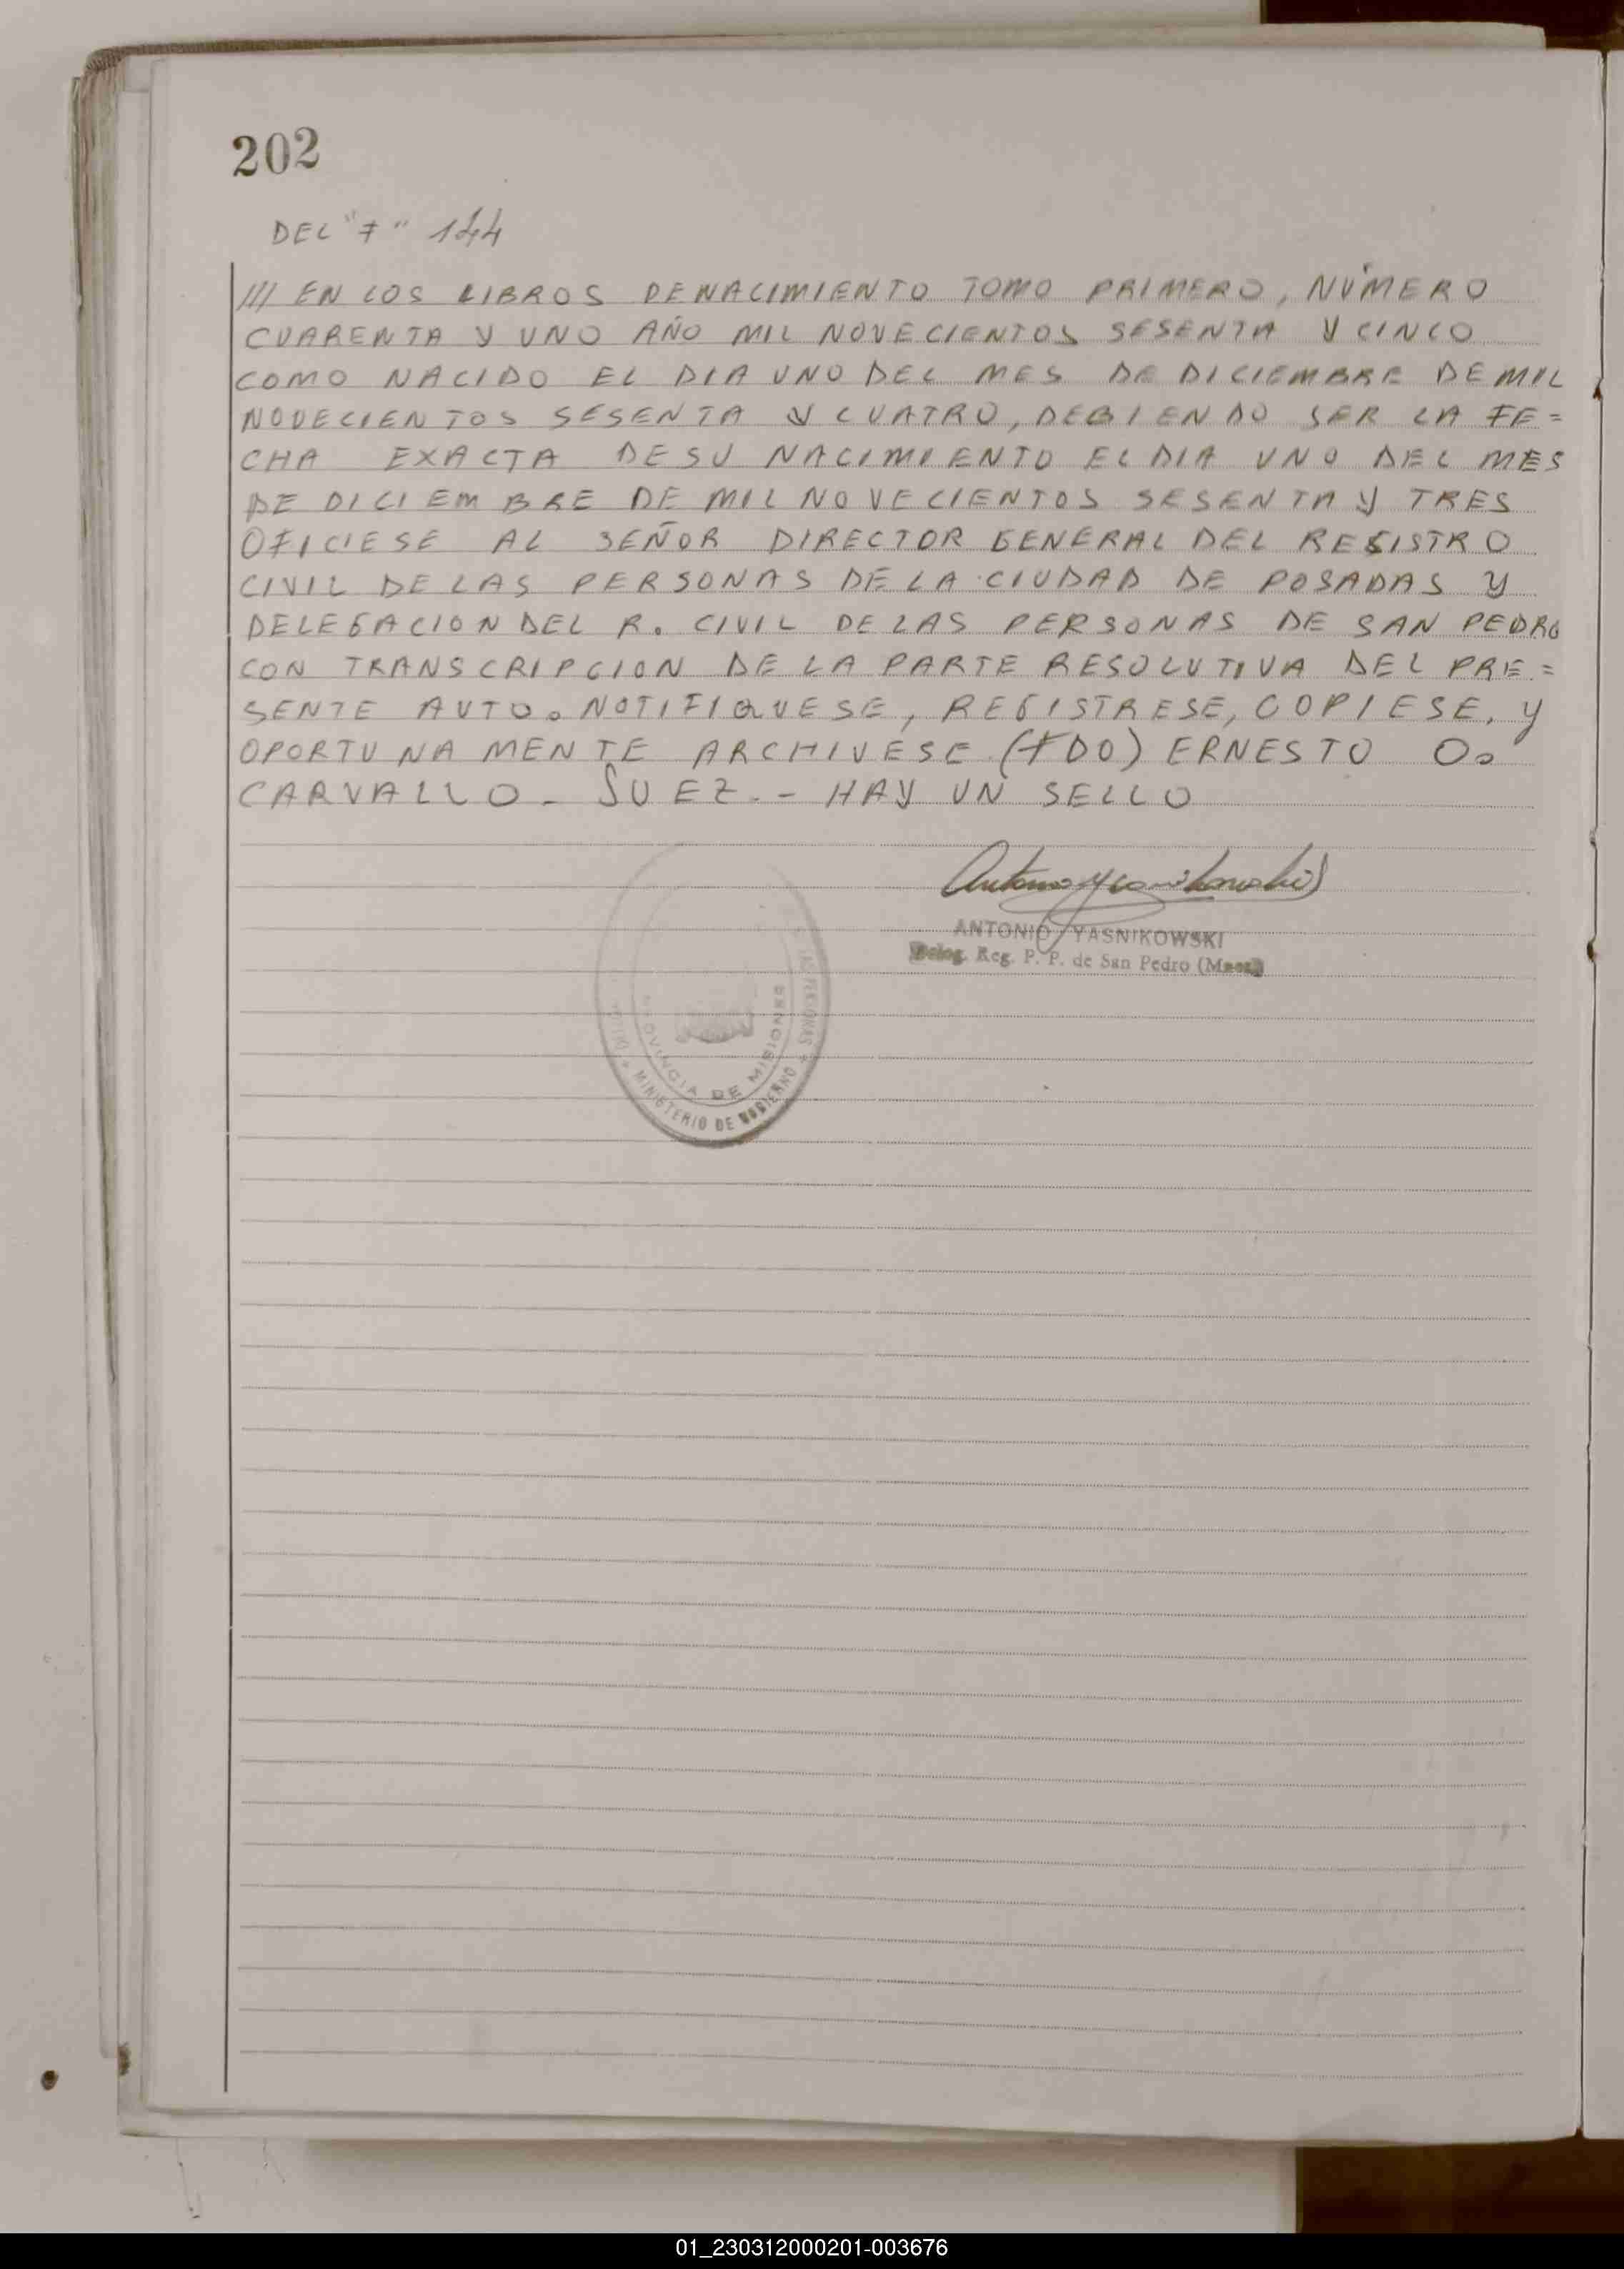 202
DEL "F" 144
/// EN LOS LIBROS DE NACIMIENTO TOMO PRIMERO, NÚMERO
CUARENTA Y UNO AÑO MIL NOVECIENTOS SESENTA Y CINCO
COMO NACIDO EL DIA UNO DEL MES DE DICIEMBRE DE MIL
NOVECIENTOS SESENTA Y CUATRO, DEBIENDO SER LA FE=
CHA EXACTA DE SU NACIMIENTO EL DIA UNO DEL MES
DE DICIEMBRE DE MIL NOVECIENTOS SESENTA Y TRES
OFICIESE AL SEÑOR DIRECTOR GENERAL DEL REGISTRO
CIVIL DE LAS PERSONAS DE LA CIUDAD DE POSADAS Y
DELEGACION DEL R. CIVIL DE LAS PERSONAS DE SAN PEDRO
CON TRANSCRIPCION DE LA PARTE RESOLUTIVA DEL PRE=
SENTE AUTO. NOTIFIQUESE, REGISTRESE, COPIESE, Y
OPORTUNAMENTE ARCHIVESE (FDO) ERNESTO O.
CARVALLO - JUEZ. - HAY UN SELLO
Antonio Yasnikowski
ANTONIO YASNIKOWSKI
Deleg. Reg. P. P. de San Pedro (Mnes.)
LAS PERSONAS
PROVINCIA DE MISIONES
MINISTERIO DE GOBIERNO
01_230312000201-003676